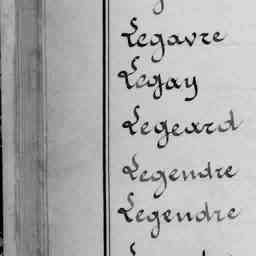 Legavre
Legay
Legeard
Legendre
Legendre